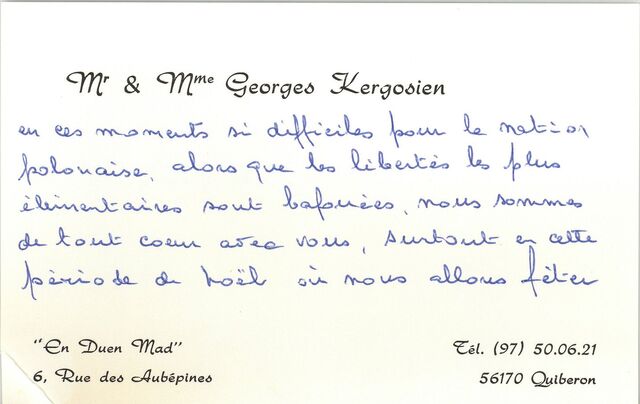 Mr & Mme Georges Kergosien
en ces moments si difficiles pour la nation
polonaise, alors que les libertés les plus
élémentaires sont bafouées, nous sommes
de tout coeur avec vous, surtout en cette
période de Noël où nous allons fêter
"En Duen Mad"
Tél. (97) 50.06.21
6, Rue des Aubépines
56170 Quiberon